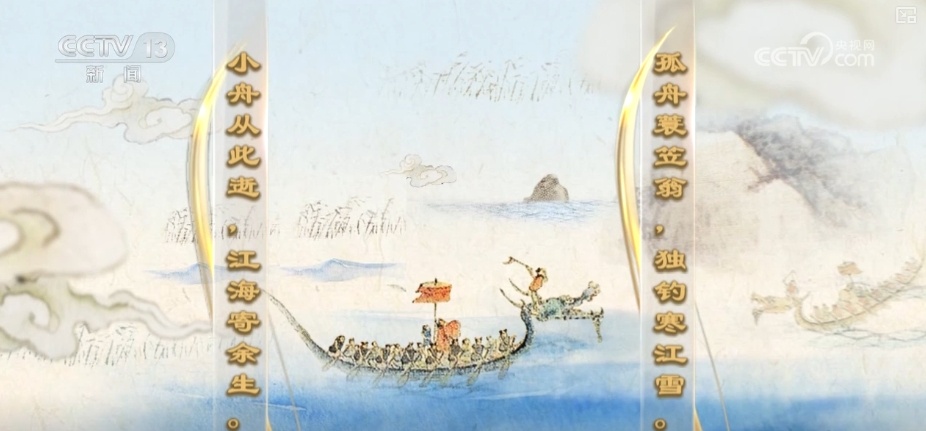 CCTV 13
新闻
CCTV 央视网
com
小舟从此逝，江海寄余生。
孤舟蓑笠翁，独钓寒江雪。